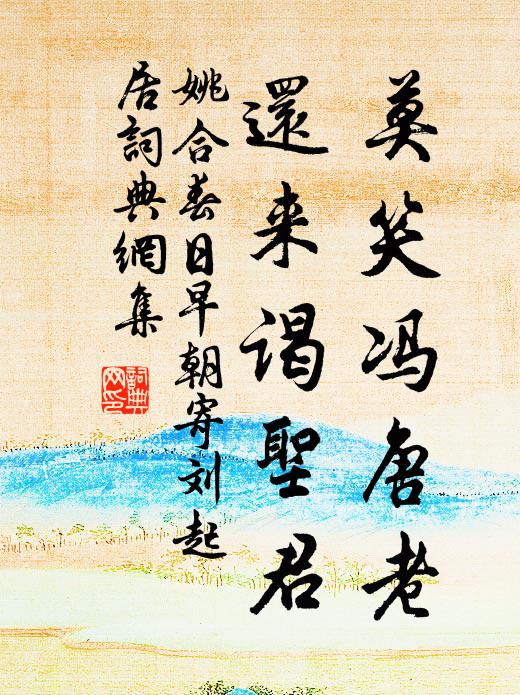 莫笑冯唐老
還来谒聖君
姚合春日早朝寄刘起
居詞典網集
詞典
网印